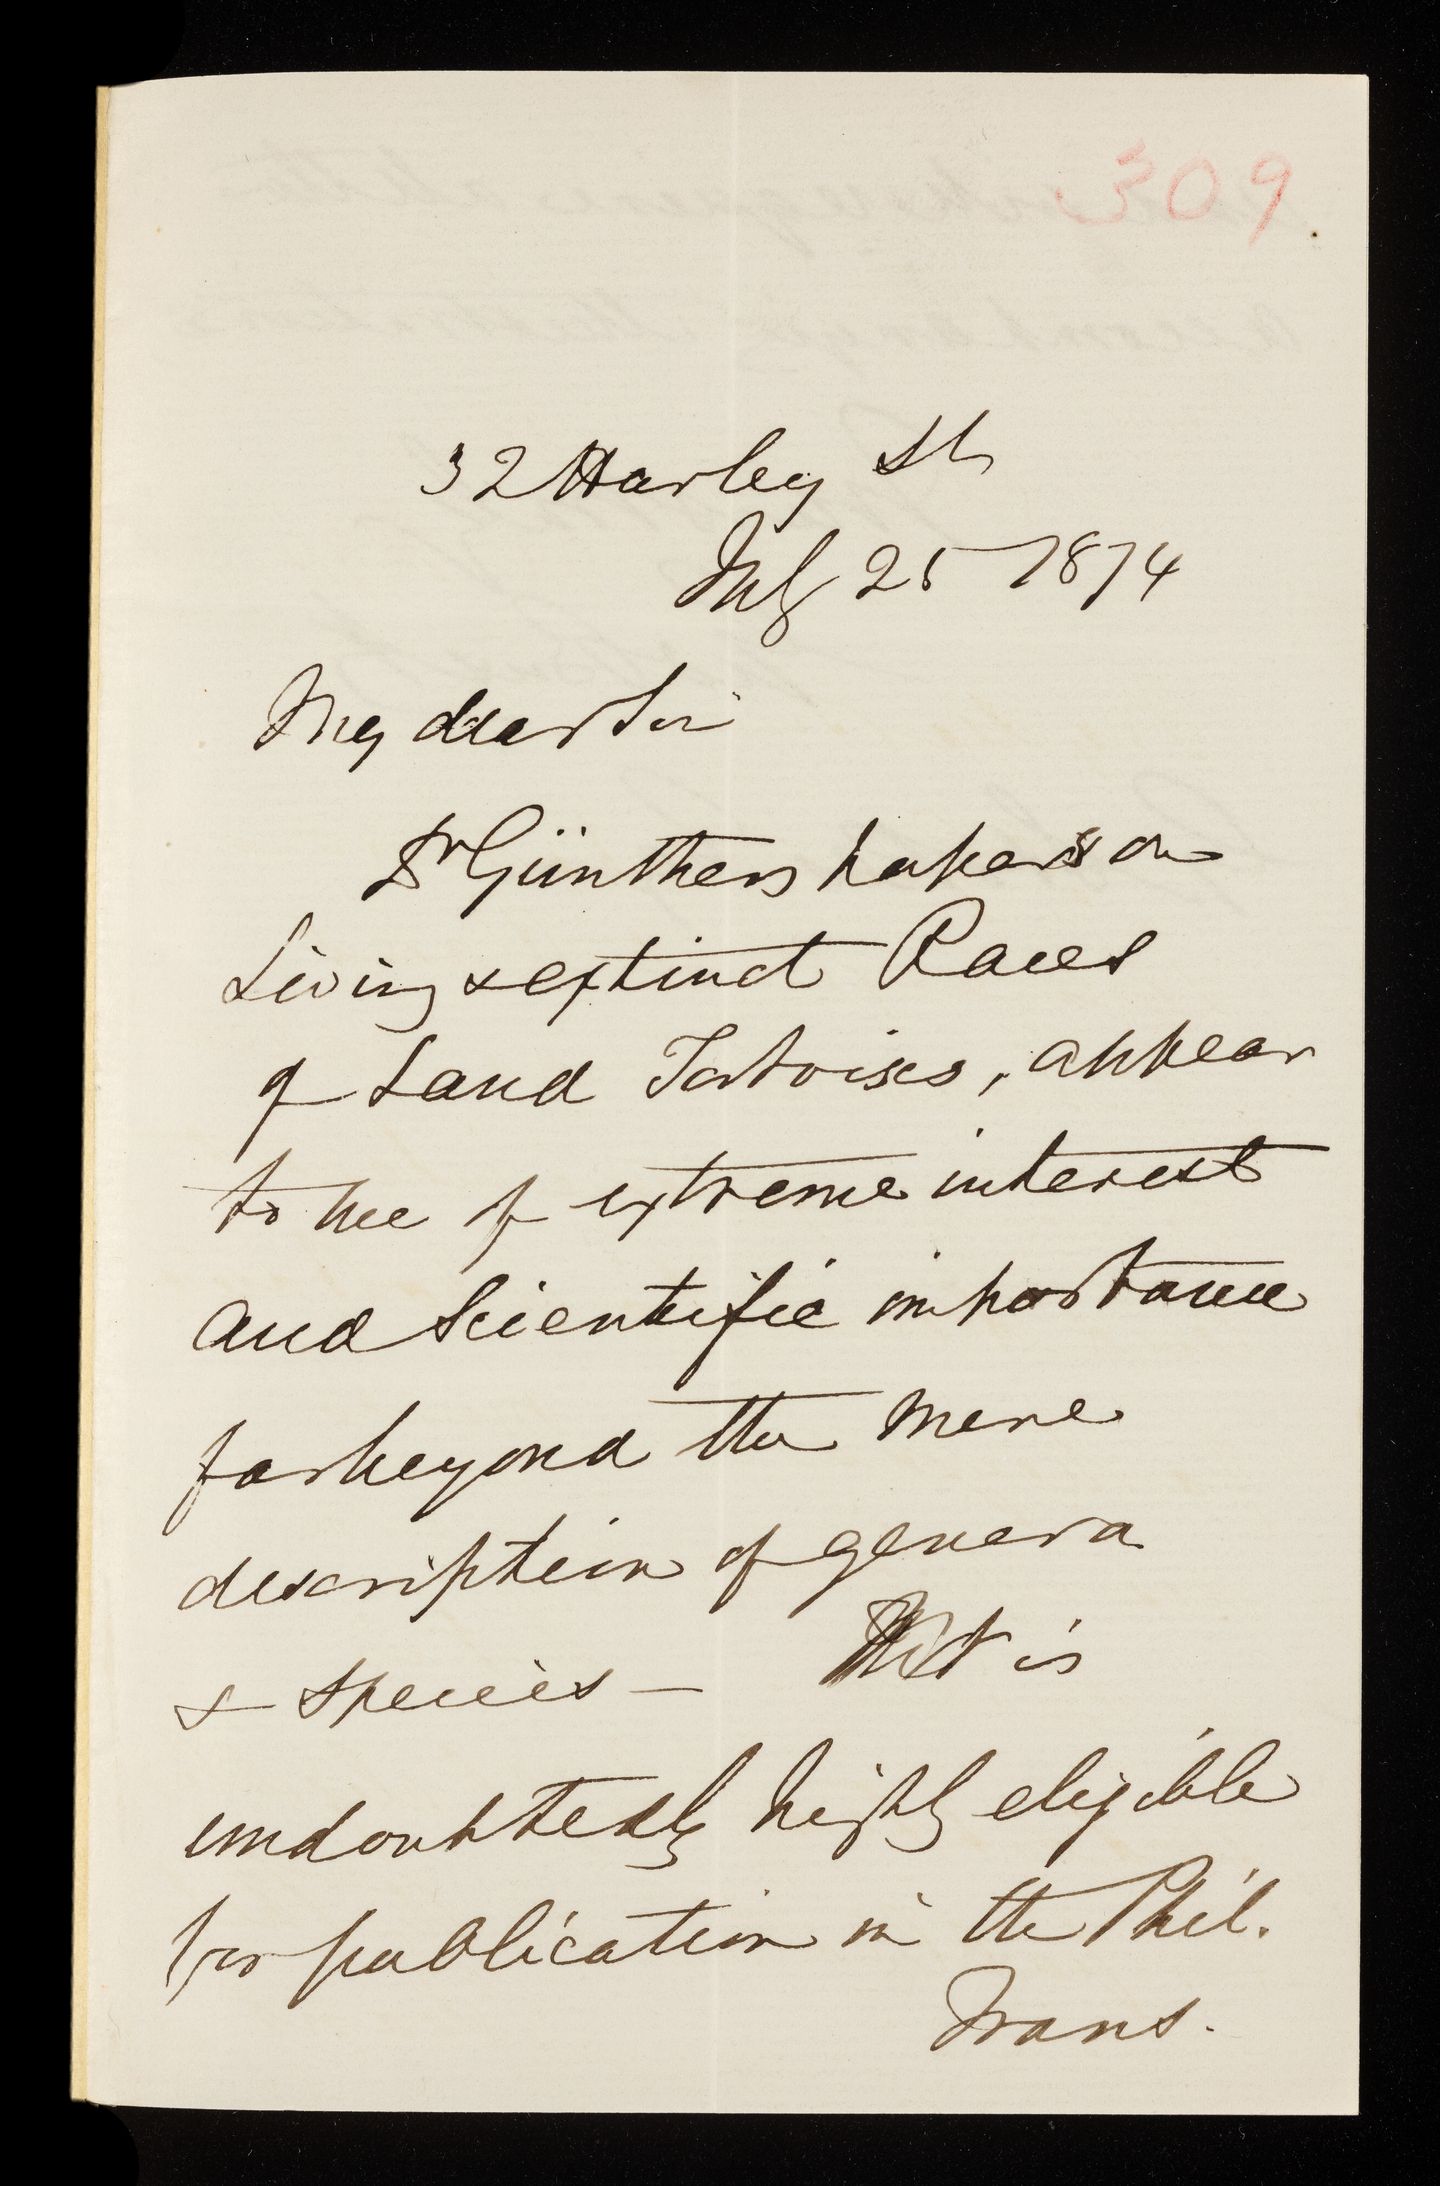 309
32 Harley St
July 25 1874
My dear Sir
Dr Günthers papers on
Living & extinct Races
of Land Tortoises, appear
to me of extreme interest
and Scientific importance
far beyond the mere
description of genera
& species — It is
undoubtedly highly eligible
for publication in the Phil.
Trans.